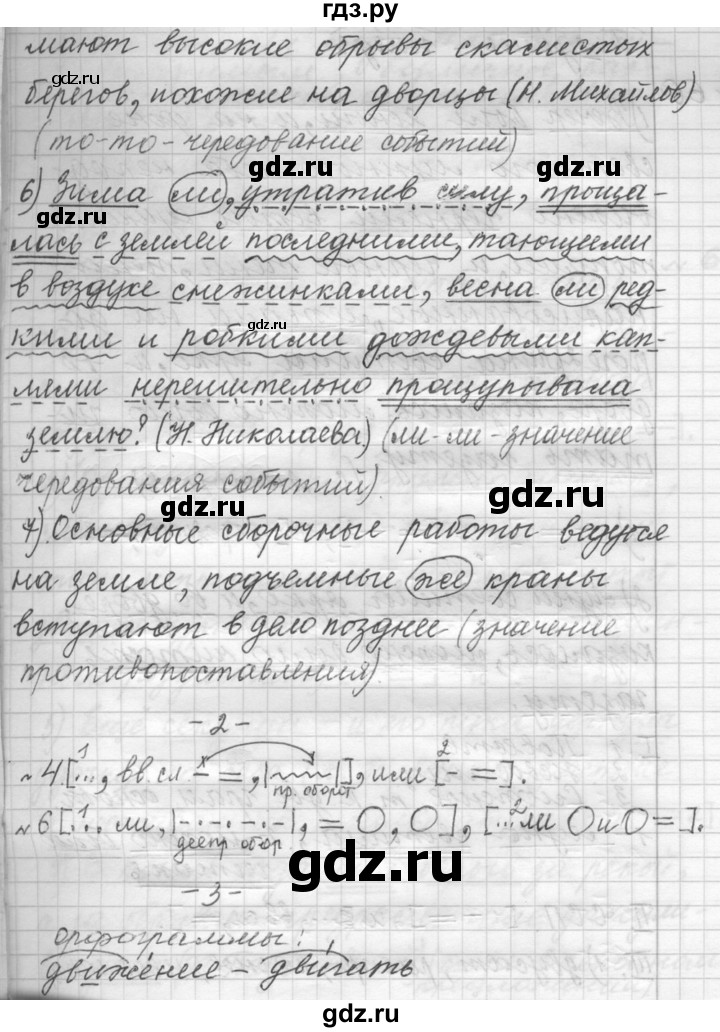 гдз.ру
мают высокие обрывы скалистых
gdz.ru gdz.ru
берегов, похожие на дворцы (Н. Михайлов)
(то-то-чередование событий)
gdz.ru
6) Зима ли, утратив силу, проща-
лась с землёй последними, тающими
gdz.ru gdz.ru
в воздухе снежинками, весна ли ред-
gdz.ru
кими и робкими дождевыми кап-
лями нерешительно прощупывала
gdz.ru
землю? (Н. Николаева) (ли-ли-значение
чередования событий).
gdz.ru gdz.ru
7) Основные сборочные работы ведутся
на земле, подъемные же краны
gdz.ru
вступают в дело позднее (значение
противопоставления).
gdz.ru
-2-
gdz.ru
№4. [1..., вв.сл - =, |пр. оборот|], или [2 - =].
№6 [1... ли, |-.-.-.-|, = О, О], [2...ли О и О = ].
деепр. обор.
gdz.ru gdz.ru
-3-
орфограммы:
gdz.ru
движение – двигать
gdz.ru